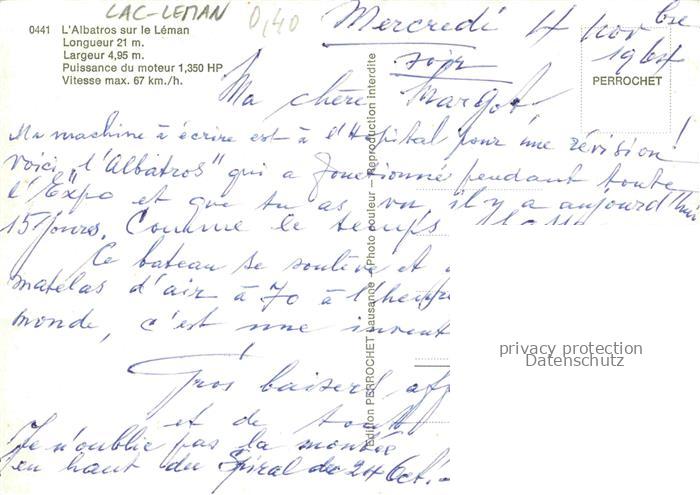 LAC-LEMAN
0,40
0441 L'Albatros sur le Léman
Longueur 21 m.
Largeur 4,95 m.
Puissance du moteur 1,350 HP
Vitesse max. 67 km./h.
Edition PERROCHET Lausanne – Photo couleur – Reproduction interdite
PERROCHET
Mercredi 4 nov bre
soir 1964
Ma chère Margot
Ma machine à écrire est à l'Hôpital pour une révision!
voici "l'Albatros" qui a fonctionné pendant toute
l'"Expo" et que tu as vu, il y a aujourd'hui
15 jours. Comme le temps
Ce bateau se soulève et
matelas d'air à 70 à l'heure
monde, c'est une invent
Gros baisers aff
et de tout
Je n'oublie pas la montée
en haut du Spiral du 24 Oct.
privacy protection
Datenschutz